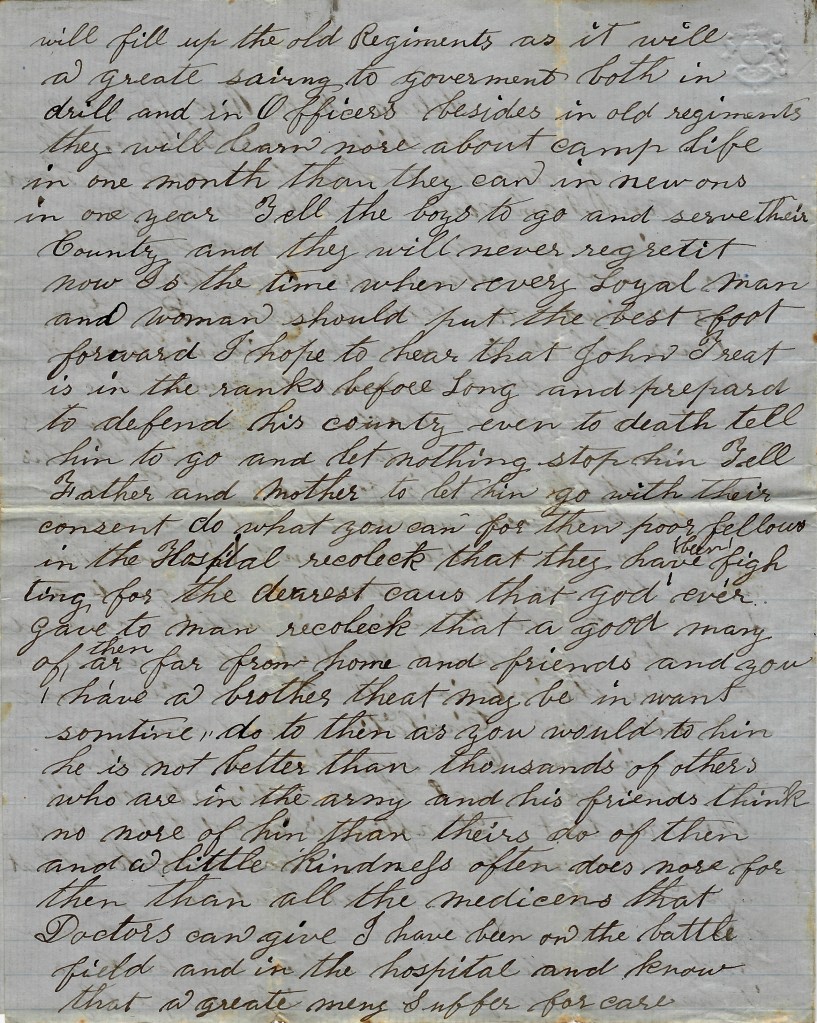 will fill up the old Regiments as it will
a greate saving to goverment both in
drill and in Officers besides in old regiments
they will learn nore about camp Life
in one month than they can in new ons
in one year Tell the boys to go and serve Their
Country and they will never regret it
now Is the time when every Loyal man
and woman should put the best foot
forward I hope to hear that John Treat
is in the ranks before Long and prepard
to defend his country even to death tell
hin to go and let nothing stop hin Tell
Father and Mother to let hin go with their
consent do what you can for then poor fellows
in the Hospital recoleck that they have been figh
ting for the dearest caus that god ever
gave to man recoleck that a good many
of then ar far from home and friends and you
have a brother theat may be in want
somtine, do to then as you would to hin
he is not better than thousands of others
who are in the army and his friends think
no nore of hin than theirs do of then
and a little kindness often does nore for
then than all the medicens that
Doctors can give I have been on the battle
field and in the hospital and know
that a greate meny Suffer for care